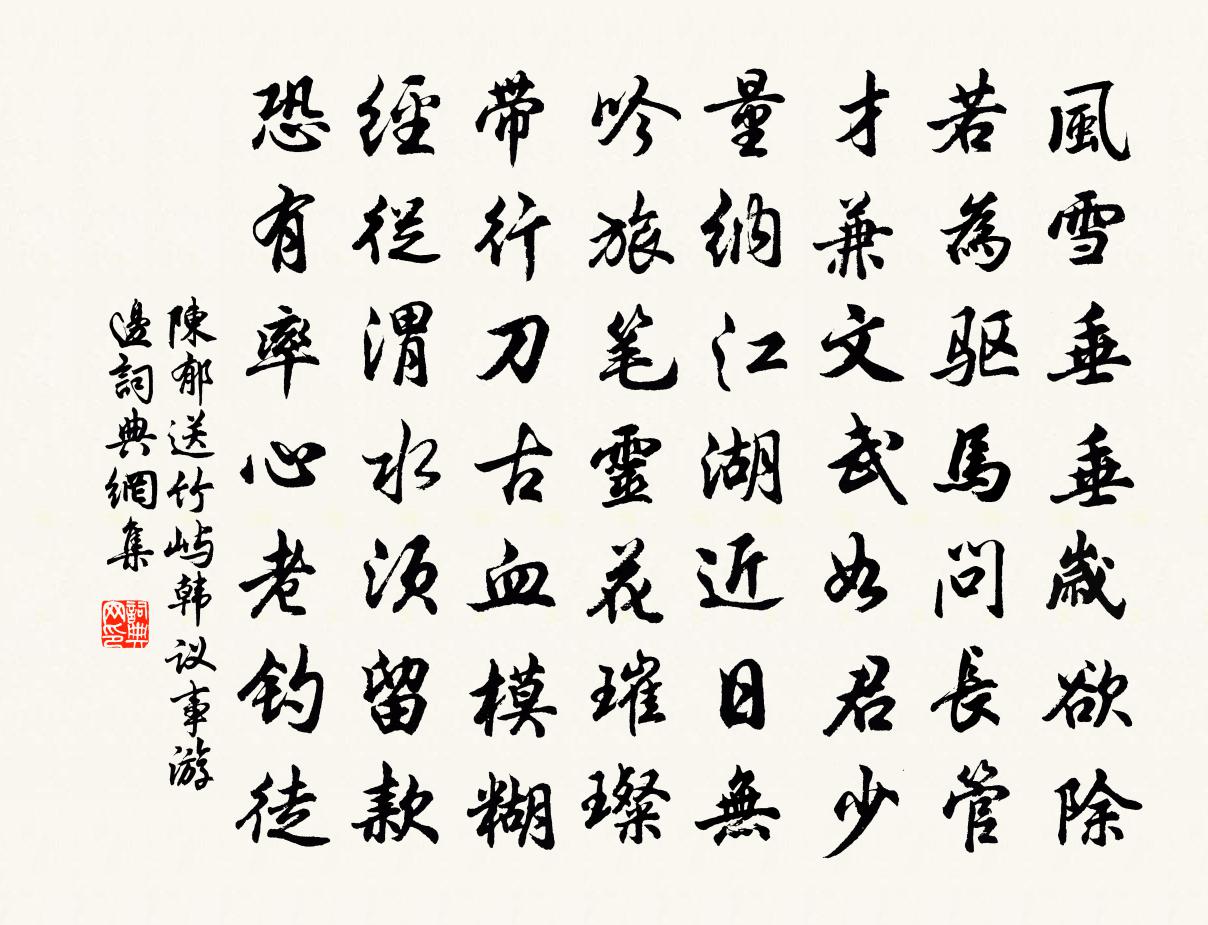 風雪垂垂歲欲除
若為驱馬问長管
才兼文武如君少
量納江湖近日無
吟旅笔靈花璀璨
带行刀古血模糊
經從渭水須留款
恐有率心老钓徒
陳郁送竹屿韩议事游
邊詞典網集
詞典网印